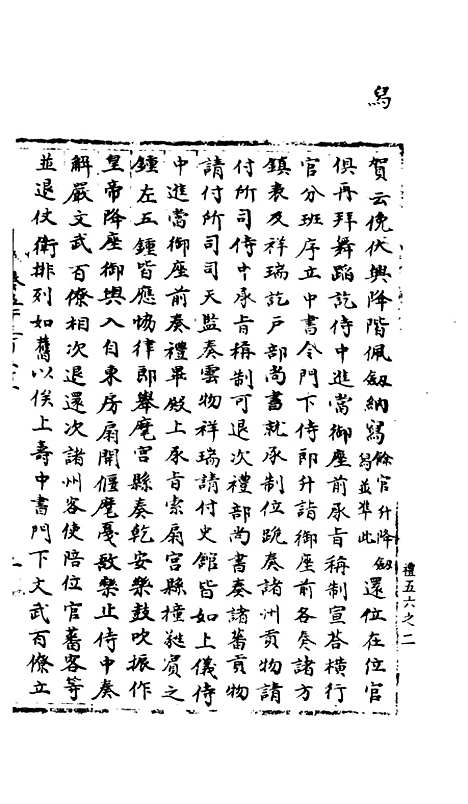 舄
禮五六之二
賀云俛伏興降階佩劔納舄餘官升降劔舄並準此還位在位官
俱再拜舞蹈訖侍中進當御座前承旨稱制宣荅橫行
官分班序立中書令門下侍郎升詣御座前各奏諸方
鎮表及祥瑞訖戶部尚書就承制位跪奏諸州貢物請
付所司侍中承旨稱制可退次禮部尚書奏諸蕃貢物
請付所司司天監奏雲物祥瑞請付史館皆如上儀侍
中進當御座前奏禮畢殿上承旨索扇宮縣撞蕤賓之
鍾左五鍾皆應協律郎舉麾宮縣奏乾安樂鼓吹振作
皇帝降座御輿入自東房扇開偃麾戞敔樂止侍中奏
解嚴文武百僚相次退還次諸州客使陪位官蕃客等
並退仗衛排列如舊以俟上壽中書門下文武百僚立